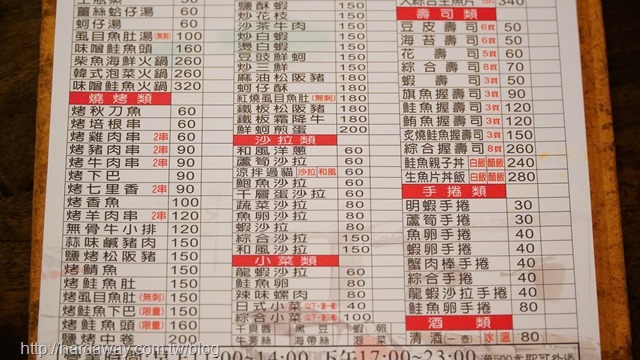 薑絲蛤仔湯 60
蚵仔湯 60
虱目魚肚湯(無刺) 100
味噌鮭魚頭 160
柴魚海鮮火鍋 260
韓式泡菜火鍋 260
味噌鮭魚火鍋 320
燒烤類
烤秋刀魚 60
烤培根串 60
烤雞肉串 2串 60
烤豬肉串 2串 90
烤牛肉串 2串 90
烤下巴 90
烤七里香 2串 90
烤香魚 100
烤羊肉串 2串 120
無骨牛小排 120
蒜味鹹豬肉 150
鹽烤松阪豬 150
烤鯖魚 150
烤鮭魚肚 150
烤虱目魚肚(無刺) 150
烤鮭魚下巴(限量) 150
鹽烤鮭魚頭(限量) 160
鹽烤中卷 200
鹽酥蝦
炒花枝
沙茶牛肉
炒白蝦
燙白蝦
豆豉鮮蚵
炒三鮮
麻油松阪豬
蚵仔酥 180
紅燒虱目魚肚(無刺) 180
鐵板松阪豬 180
鐵板霜降牛 180
鮮蚵煎蛋 200
沙拉類
和風洋蔥 60
蘆筍沙拉 60
涼拌過貓 沙拉 和風 60
鮑魚沙拉 60
千層蛋沙拉 60
蔬菜沙拉 80
魚卵沙拉 80
蝦沙拉 80
綜合沙拉 150
和風沙拉 150
小菜類
龍蝦沙拉 60
鮭魚卵 80
辣味螺肉 80
日式小菜 40
綜合小菜 100
干貝唇 黑豆 蝦卵
牛蒡絲 海帶絲 泡菜
340
壽司類
豆皮壽司 6貫 50
海苔壽司 6貫 50
花壽司 5貫 60
綜合壽司 8貫 70
蝦壽司 3貫 50
旗魚握壽司 3貫 90
鮭魚握壽司 3貫 120
鮪魚握壽司 3貫 120
炙燒鮭魚握壽司 3貫 150
綜合握壽司 8貫 260
鮭魚親子丼 白飯 醋飯 240
生魚片丼飯 白飯 醋飯 280
手捲類
明蝦手捲 30
蘆筍手捲 30
魚卵手捲 40
蝦卵手捲 40
蟹肉棒手捲 40
綜合手捲 40
龍蝦沙拉手捲 40
鮭魚卵手捲 60
酒類
清酒(一壺) 冰 溫 80
14:00 下午17:00~23:00
http://hardaway.com.tw/blog